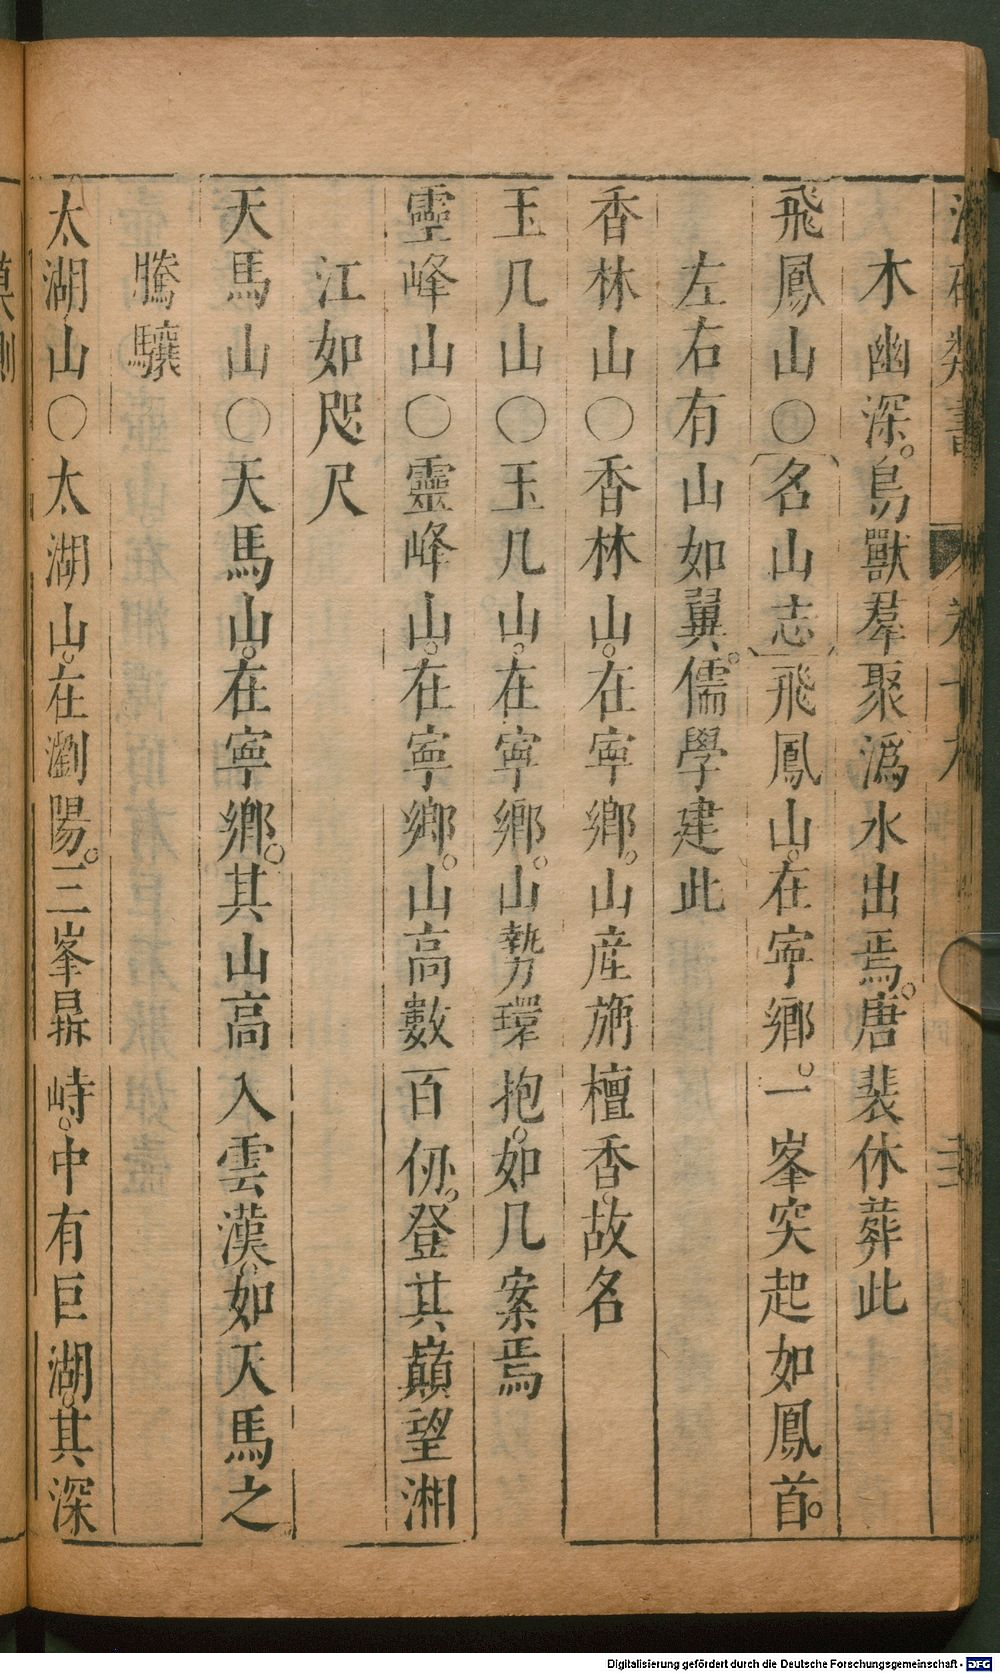 木幽深。鳥獸羣聚溈水出焉。唐裴休葬此
飛鳳山○名山志飛鳳山。在寧鄉。一峯突起如鳳首。
左右有山如翼。儒學建此
香林山○香林山。在寧鄉。山産旃檀香。故名
玉几山○玉几山。在寧鄉。山勢環抱。如几案焉
靈峰山○靈峰山。在寧鄉。山高數百仞。登其巔望湘
江如咫尺
天馬山○天馬山。在寧鄉。其山高入雲漢。如天馬之
騰驤
太湖山○太湖山。在瀏陽。三峯鼎峙。中有巨湖。其深
莫測
Digitalisierung gefördert durch die Deutsche Forschungsgemeinschaft - DFG